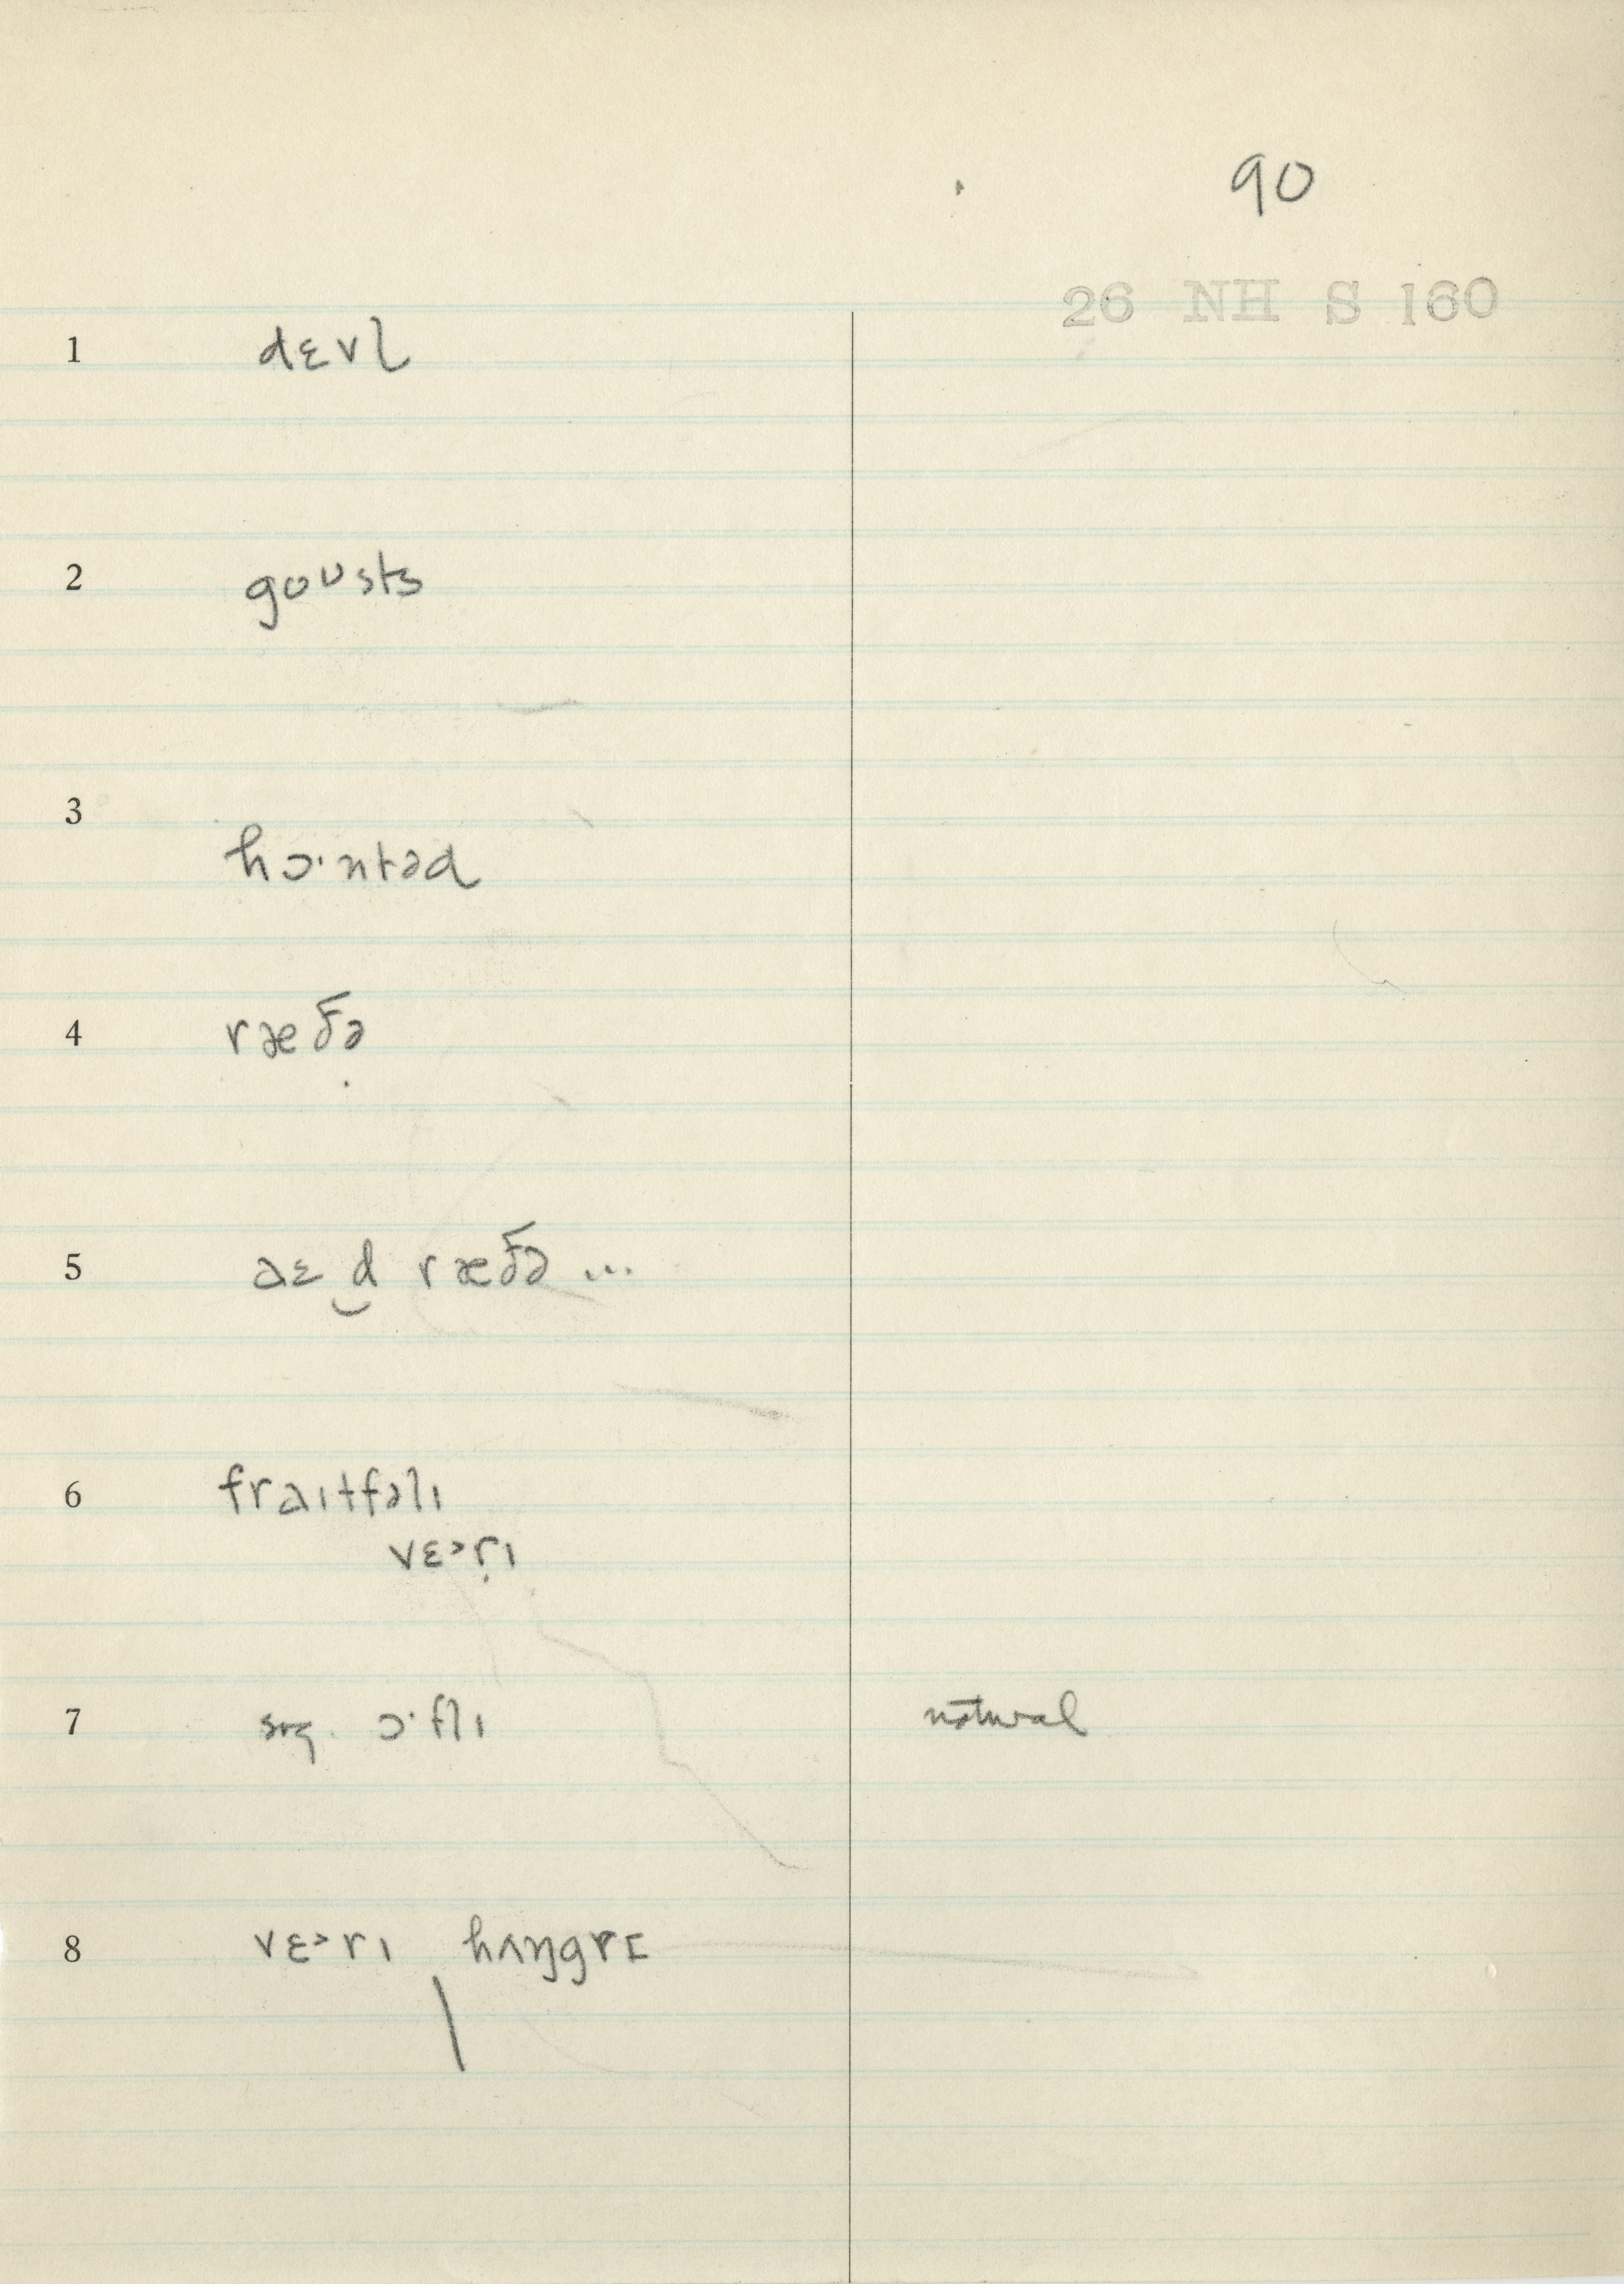 90
26 NH S 160
1 dɛvl̩
2 goʊsts
3 hɔ·ntəd
4 ræðə
5 aɛ d̮ ræðə ...
6 fraɪtfəlɪ
vɛ˃ṛɪ
7 ɔ·flɪ natural
8 vɛ˃rɪ hʌŋgrɪ